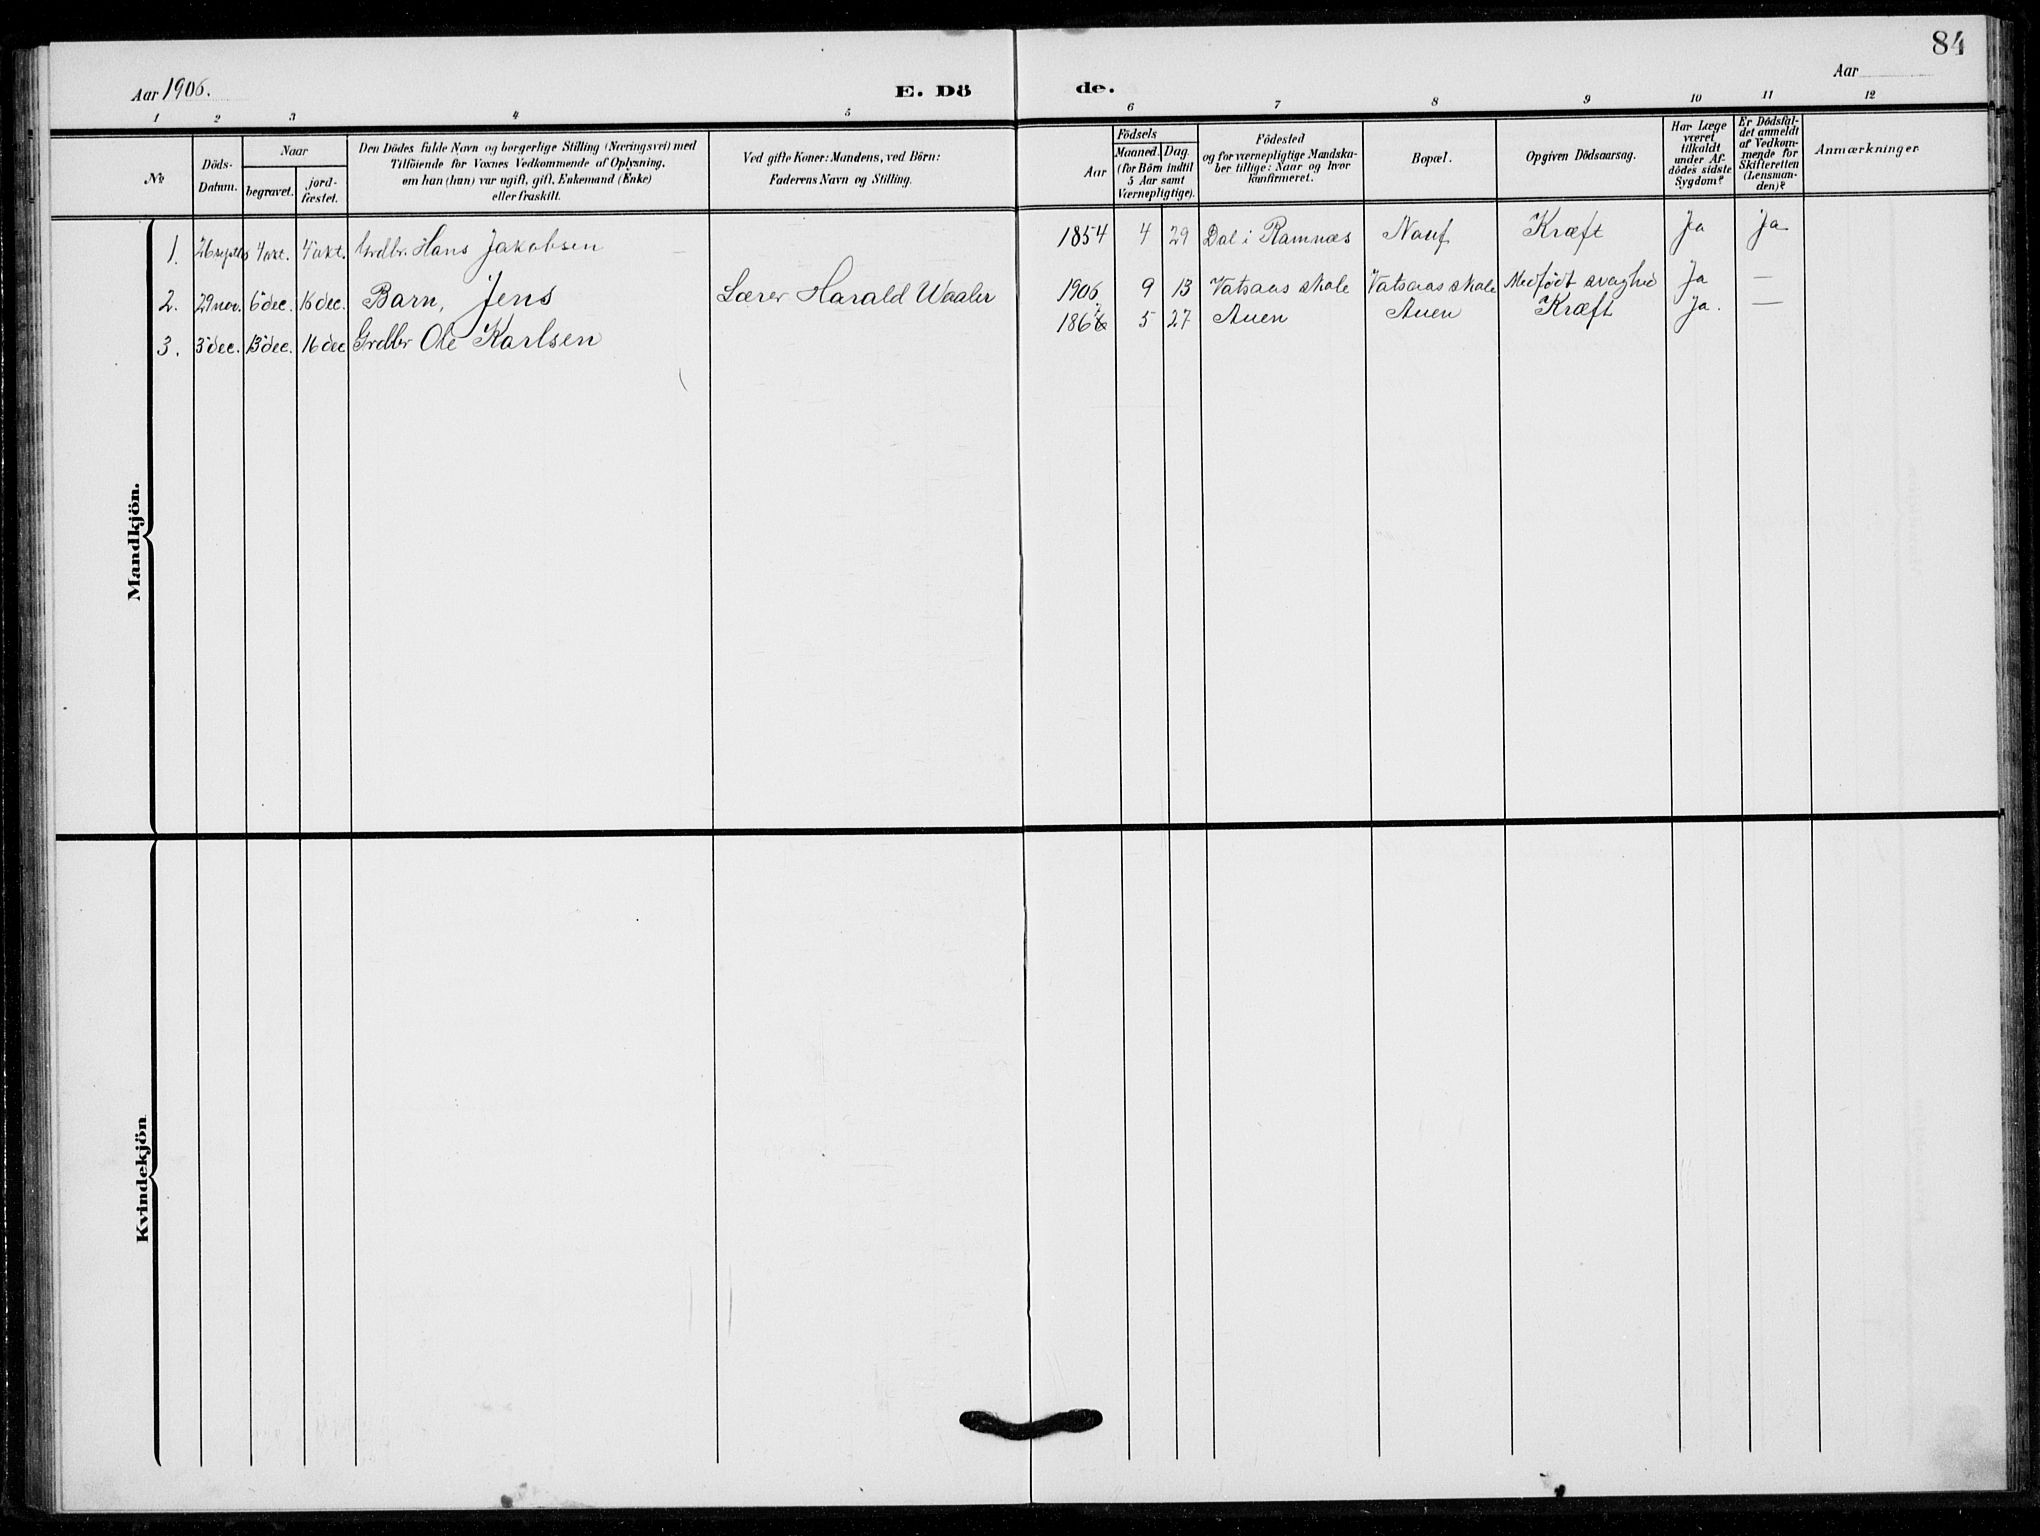 84
Aar 1906.
E. Dö
de.
Aar
1 2 3 4 5 6 7 8 9 10 11 12
No
Döds-
Datum.
Naar
begravet.
jord-
fæstet.
Den Dödes fulde Navn og borgerlige Stilling (Næringsvei) med
Tilföiende for Voxnes Vedkommende af Oplysning,
om han (hun) var ugift, gift, Enkemand (Enke)
eller fraskilt.
Ved gifte Koner: Mandens, ved Börn:
Faderens Navn og Stilling.
Födsels
Aar
Maaned.
Dag
(for Börn indtil
5 Aar samt
Værnepligtige).
Födested
og for værnepligtige Mandska-
ber tillige: Naar og hvor
konfirmeret.
Bopæl.
Opgiven Dödsaarsag.
Har Læge
været
tilkaldt
under Af-
dödes sidste
Sygdom?
Er Dödsfal-
det anmeldt
af Vedkom-
mende for
Skifteretten
(Lensman-
den)?
Anmærkninger
Mandkjön.
1. 26 septbr 4 okt. 4 okt. Grdbr. Hans Jakobsen 1854 4 29 Dal i Ramnæs Nauf Kræft Ja Ja
2. 29 nov. 6 dec. 16 dec. Barn, Jens Lærer Harald Waaler 1906 9 13 Vatsaas skole Vatsaas skole Medfødt svaghed Ja —
3. 5 dec. 13 dec. 16 dec Grdbr Ole Karlsen 5 27 Auen Auen Kræft Ja. —
Kvindekjön